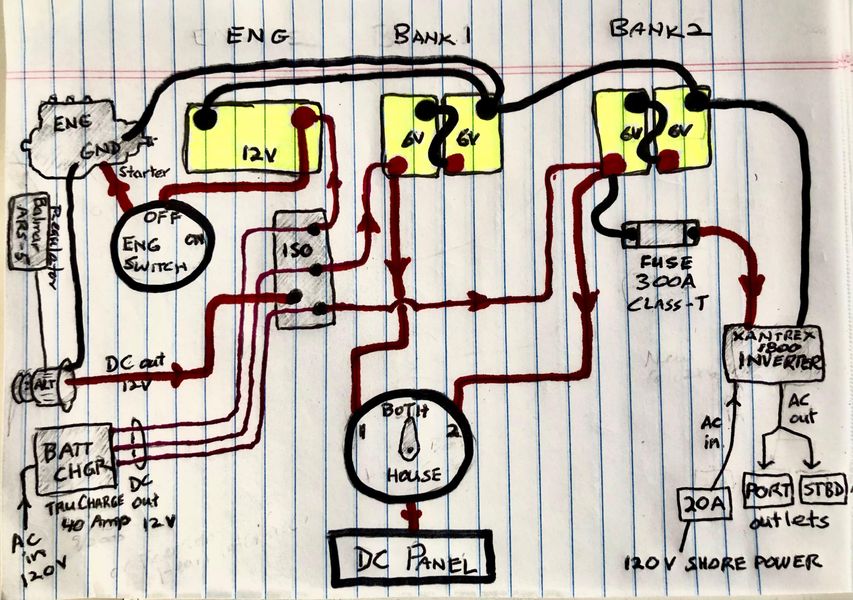 ENG
BANK 1
BANK 2
ENG
GND
12V
6V
6V
6V
6V
Starter
OFF
ON
ENG
SWITCH
Regulator
Balmar
ARS-5
ISO
FUSE
300A
CLASS-T
XANTREX
1800
INVERTER
ALT
DC out
12V
BOTH
1
2
HOUSE
AC
in
AC
out
BATT
CHGR
DC
out
12V
TRUCHARGE
40 Amp
AC
in
120V
20A
PORT
STBD
outlets
DC PANEL
120V SHORE POWER